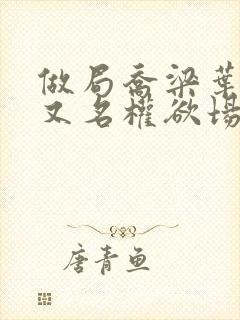 做局喬梁葉
又名權欲場
唐青魚